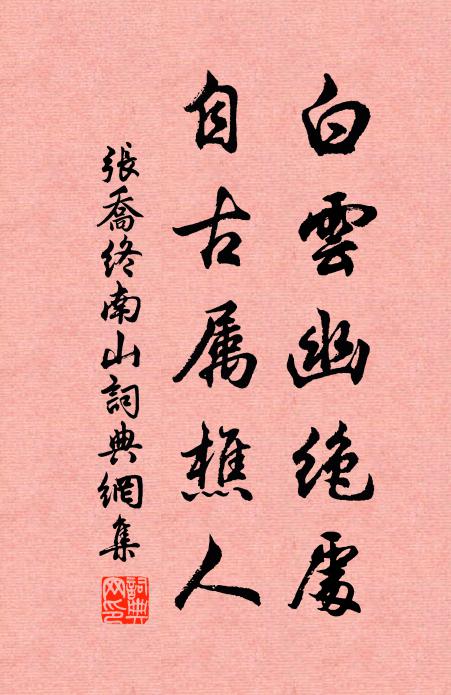 白雲幽絶處
自古属樵人
張喬終南山詞典網集
詞典
网印